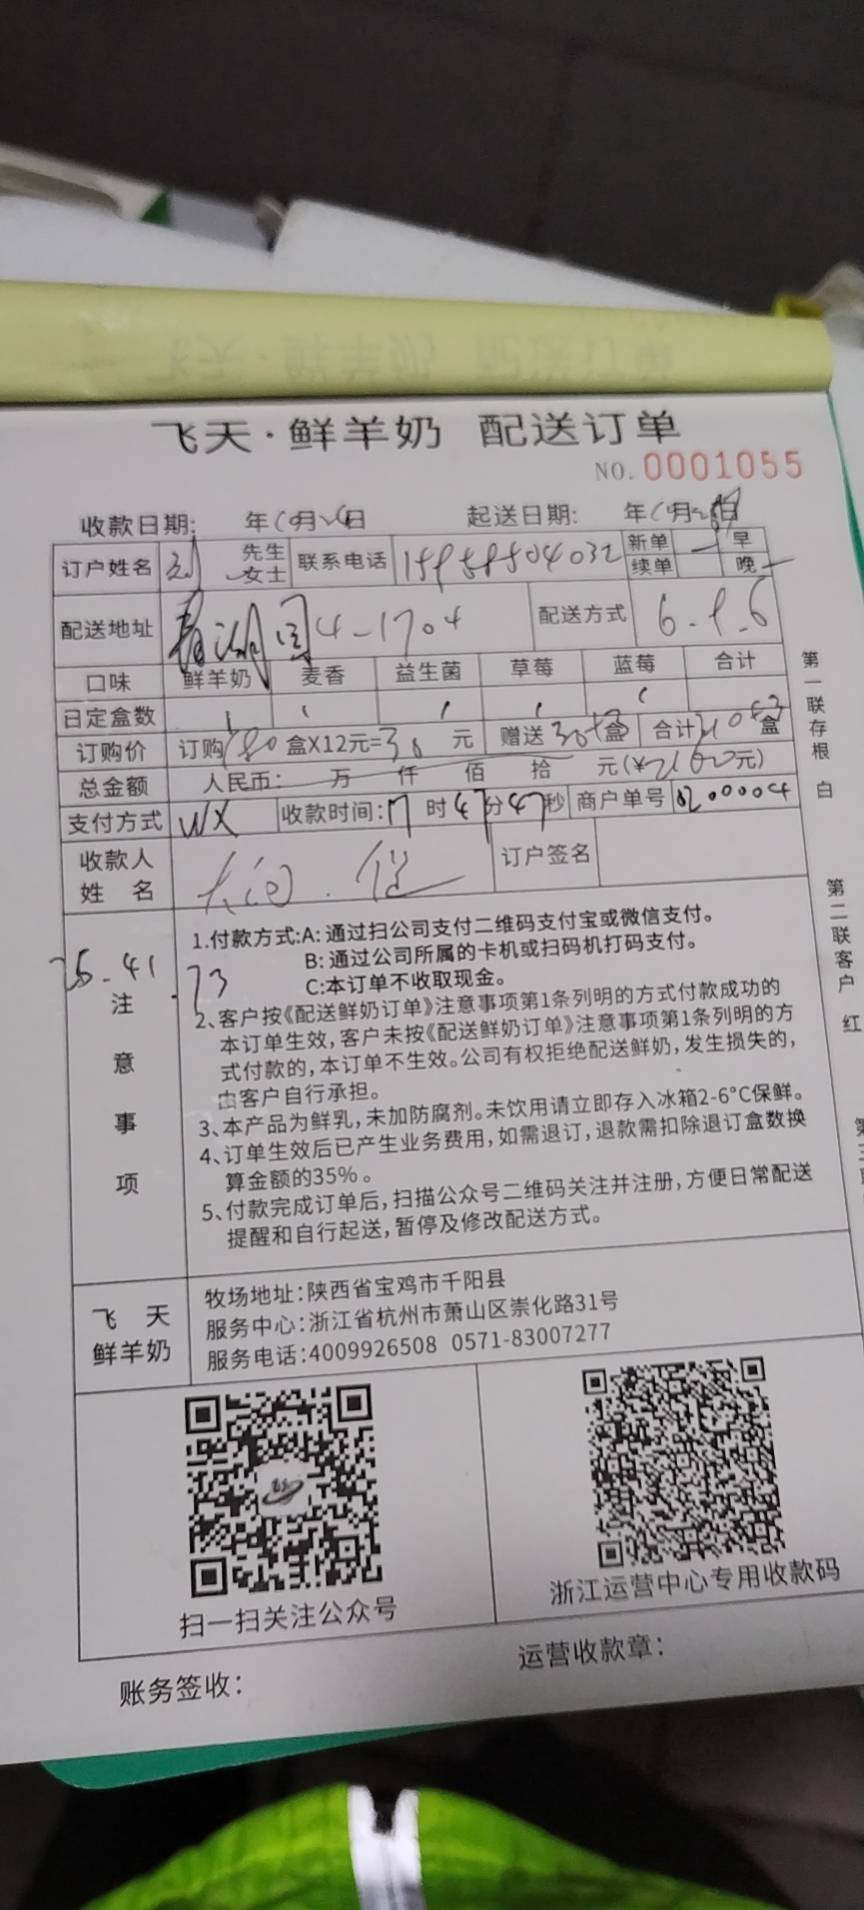 飞天·鲜羊奶 配送订单
NO. 0001055
收款日期: 年 月 日 起送日期: 年 月 日
订户姓名 刘 先生 女士 联系电话 新单 早
续单 晚
配送地址 4-1704 配送方式
口味 鲜羊奶 麦香 益生菌 草莓 蓝莓 合计
日定盒数
订购价 订购 180 盒X12元= 元 赠送 盒 合计 盒
总金额 人民币: 万 仟 佰 拾 元(¥ 元)
支付方式 WX 收款时间: 17 时 47 分 47 秒 商户单号
收款人 姓 名 订户签名
注意事项
1.付款方式:A: 通过扫公司支付二维码支付宝或微信支付。
B: 通过公司所属的卡机或扫码机打码支付。
C:本订单不收取现金。
2、客户按《配送鲜奶订单》注意事项第1条列明的方式付款成功的
本订单生效,客户未按《配送鲜奶订单》注意事项第1条列明的方
式付款的,本订单不生效。公司有权拒绝配送鲜奶,发生损失的,
由客户自行承担。
3、本产品为鲜乳,未加防腐剂。未饮用请立即存入冰箱2-6°C保鲜。
4、订单生效后已产生业务费用,如需退订,退款需扣除退订盒数换
算金额的35%。
5、付款完成订单后,扫描公众号二维码关注并注册,方便日常配送
提醒和自行起送,暂停及修改配送方式。
飞天
鲜羊奶
牧场地址:陕西省宝鸡市千阳县
服务中心:浙江省杭州市萧山区崇化路31号
服务电话:4009926508 0571-83007277
扫一扫关注公众号
浙江运营中心专用收款码
账务签收:
运营收款章:
第一联存根 白
第二联客户 红